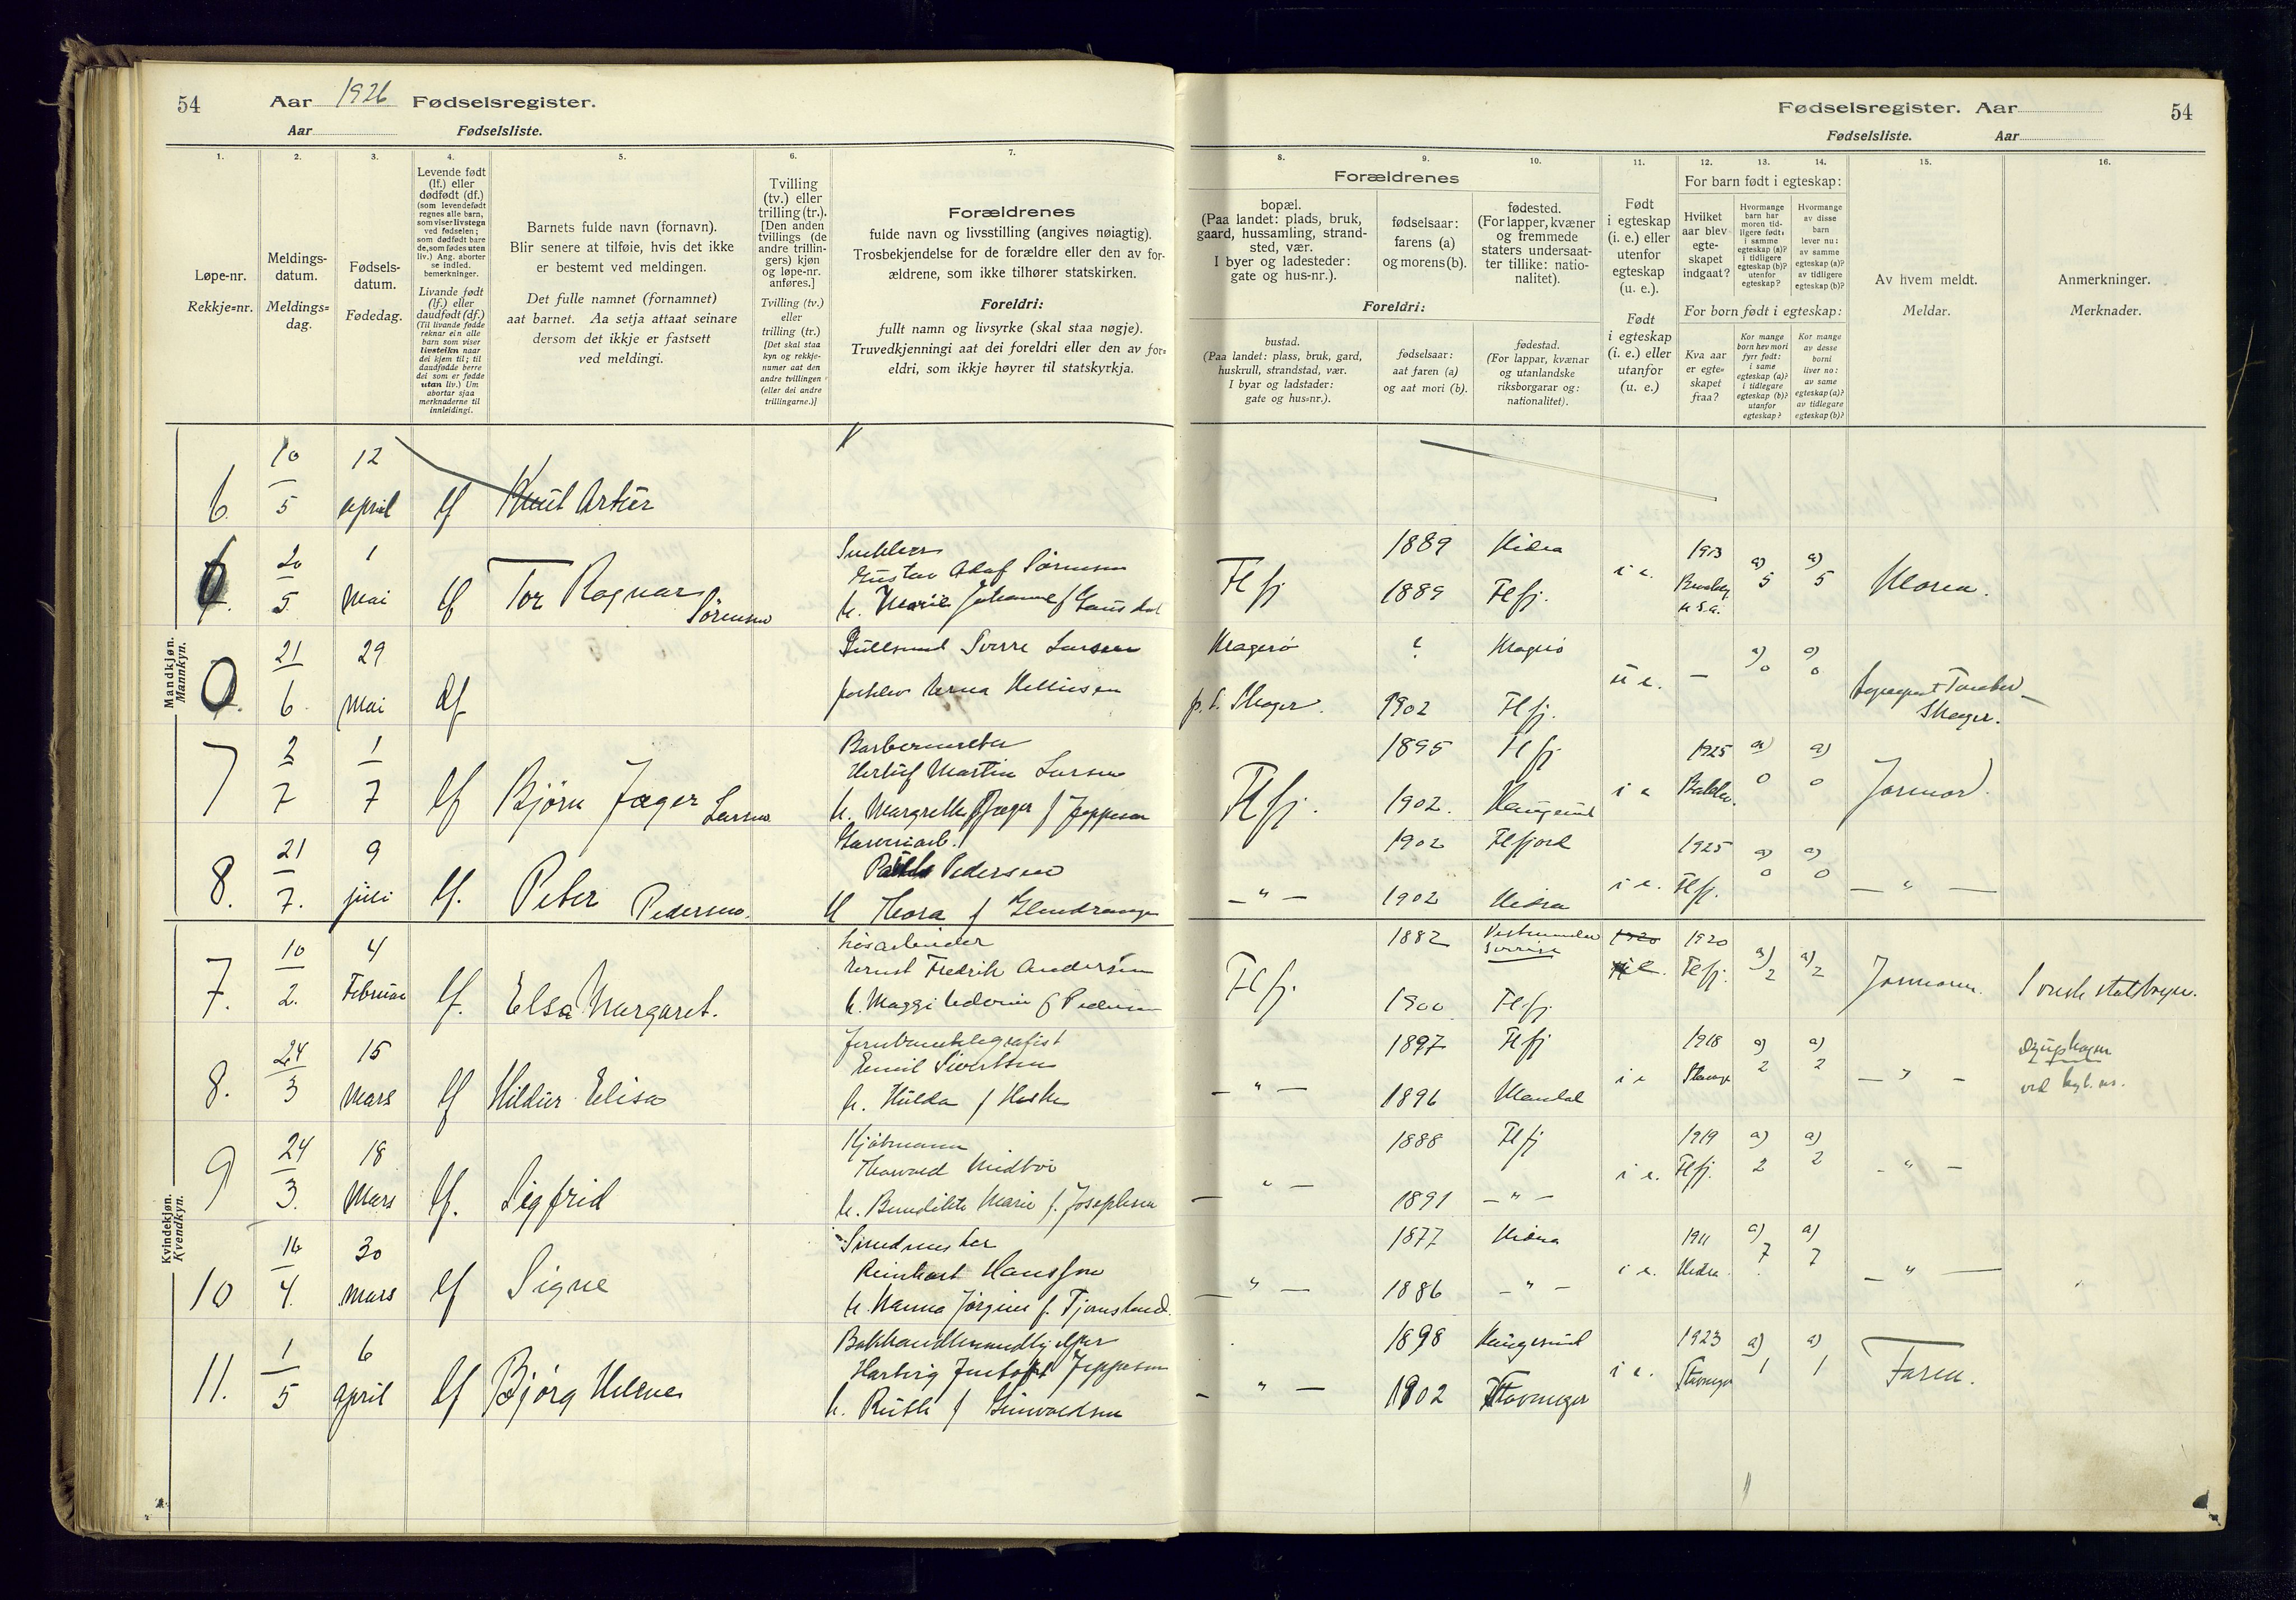 54 Aar 1926 Fødselsregister.
Aar Fødselsliste.
Fødselsregister. Aar 54
Fødselsliste. Aar
1. 2. 3. 4. 5. 6. 7. 8. 9. 10. 11. 12. 13. 14. 15. 16.
Løpe-nr.
Rekkje=nr.
Meldings-
datum.
Meldings=
dag.
Fødsels-
datum.
Fødedag.
Levende født
(lf.) eller
dødfødt (df.)
(som levendefødt
regnes alle barn,
som viser livstegn
ved fødselen;
som dødfødt bare
de, som fødes uten
liv.) Ang. aborter
se indled.
bemerkninger.
Livande født
(lf.) eller
daudfødt (df.)
(Til livande fødde
reknar ein alle
barn som viser
livsteikn naar
dei kjem til; til
daudfødde berre
dei som er fødde
utan liv.) Um
abortar sjaa
merknaderne til
innleidingi.
Barnets fulde navn (fornavn).
Blir senere at tilføie, hvis det ikke
er bestemt ved meldingen.
Det fulle namnet (fornamnet)
aat barnet. Aa setja attaat seinare
dersom det ikkje er fastsett
ved meldingi.
Tvilling
(tv.) eller
trilling (tr.).
[Den anden
tvillings (de
andre trillin-
gers) kjøn
og løpe-nr.
anføres.]
Tvilling (tv.)
eller
trilling (tr.)
[Det skal staa
kyn og rekkje-
numer aat den
andre tvillingen
(eller dei andre
trillingarne.)]
Forældrenes
fulde navn og livsstilling (angives nøiagtig).
Trosbekjendelse for de forældre eller den av for-
ældrene, som ikke tilhører statskirken.
Foreldri:
fullt namn og livsyrke (skal staa nøgje).
Truvedkjenningi aat dei foreldri eller den av for=
eldri, som ikkje høyrer til statskyrkja.
Forældrenes
bopæl.
(Paa landet: plads, bruk,
gaard, hussamling, strand-
sted, vær.
I byer og ladesteder:
gate og hus-nr.).
fødselsaar:
farens (a)
og morens (b).
fødested.
(For lapper, kvæner
og fremmede
staters undersaat-
ter tillike: natio-
nalitet).
Foreldri:
bustad.
(Paa landet: plass, bruk, gard,
huskrull, strandstad, vær.
I byar og ladstader:
gate og hus=nr.).
fødselsaar:
aat faren (a)
og aat mori (b).
fødestad.
(For lappar, kvænar
og utanlandske
riksborgarar og:
nationalitet).
Født
i egteskap
(i. e.) eller
utenfor
egteskap
(u. e.).
Født
i egteskap
(i. e.) eller
utanfor
(u. e.)
For barn født i egteskap:
Hvilket
aar blev
egte-
skapet
indgaat?
Hvormange
barn har
moren tid-
ligere født:
i samme
egteskap (a)?
i tidligere
egteskap (b)?
utenfor
egteskap?
Hvormange
av disse
barn
lever nu:
av samme
egteskap (a)?
av tidligere
egteskap (b)?
For born født i egteskap:
Kva aar
er egte=
skapet
fraa?
Kor mange
born hev mori
fyrr født:
i same
egteskap (a)?
i tidlegare
egteskap (b)?
utanfor
egteskap?
Kor mange
av desse
borni
liver no:
av same
egteskap (a)?
av tidlegare
egteskap (b)?
Av hvem meldt.
Meldar.
Anmerkninger.
Merknader.
Mandkjøn.
Mannkyn.
6. 10/5 12 april lf Knut Artur
20/5 1 Mai lf Tor Ragnar Sörensen
Gustav Adolf Sörensen
Flfj 1889 Hidra i e. 1913 a) 5 a) 5
1889 Flfj. U.S.A.
0 21/6 29 Mai df
Sverre Larsen
Kragerö ? Kragerö u e. — a) 0 a) 0
Skager. 1902 Flfj.
Skager.
7 2/7 1/7 lf Björn Jæger Larsen
Barbermester
Herluf Martin Larsen
h. Margrethe Jæger f Jeppesen
Flfj. 1895 Flfj i e 1925 a) 0 a) 0 Jormor
1902. Haugesund
8. 21/7. 9 juli lf. Peter Pedersen.
Pedersen
h Thora f
— " — 1902 Flfjord i e. 1925 Flfj. a) 0 a) 0 — " —
1902 Hidra
Kvindekjøn.
Kvendkyn.
7. 10/2. 4 Februar lf. Elsa Margaret.
Lösarbeider
Ernst Fredrik Andersen
h. Maggi f Pedersen
Flfj. 1882 1920 1920 Flfj. a) 2 a) 2 Jormoren.
1900 Flfj.
8. 24/3 15 Mars lf Hildur Elisa
Jernbanetelegrafist
Emil Sivertsen
h. Hulda f
— " — 1897 Flfj i e 1918 a) 2 a) 2 — " —
1896 Mandal
9 24/3. 18 Mars lf. Sigfrid
Kjöbmann
Thorvald Midbö
h. Benedikte Marie f. Josephsen
— " — 1888 Flfj i e. 1919 Flfj. a) 2 a) 2 — " —
1891 — " —
10 16/4. 30 Mars lf Signe
Reinhart Hansson
h. Hanna Jörgine f. Tjomsland.
— " — 1877 Hidra i e. 1911 Hidra a) 7 a) 7 — " —
1886 — " —
11. 1/5 6 april lf Björg Helene
Jeppesen
h. Ruth f
— " — 1898 Haugesund i e. 1923 Stavanger a) 1 a) 1 Faren.
1902 Stavanger